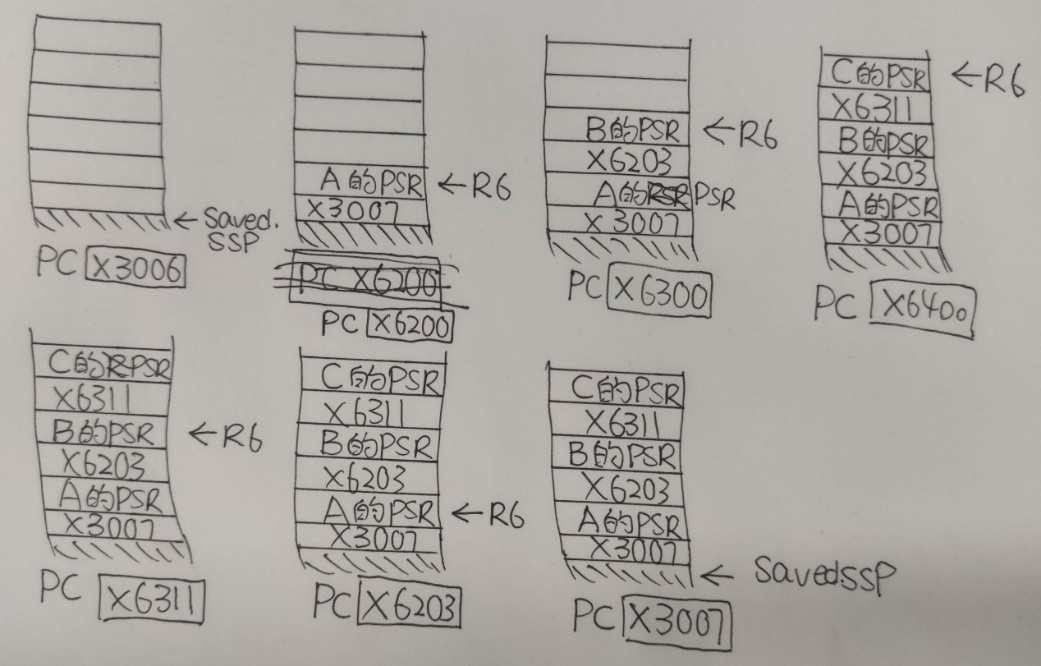 ← Saved.
SSP
PC X3006
A的PSR ← R6
X3007
PC X6200
PC X6200
B的PSR ← R6
X6203
A的PSR PSR
X3007
PC X6300
C的PSR ← R6
X6311
B的PSR
X6203
A的PSR
X3007
PC X6400
C的PSR
X6311
B的PSR ← R6
X6203
A的PSR
X3007
PC X6311
C的PSR
X6311
B的PSR
X6203
A的PSR ← R6
X3007
PC X6203
C的PSR
X6311
B的PSR
X6203
A的PSR
X3007
← SavedSSP
PC X3007